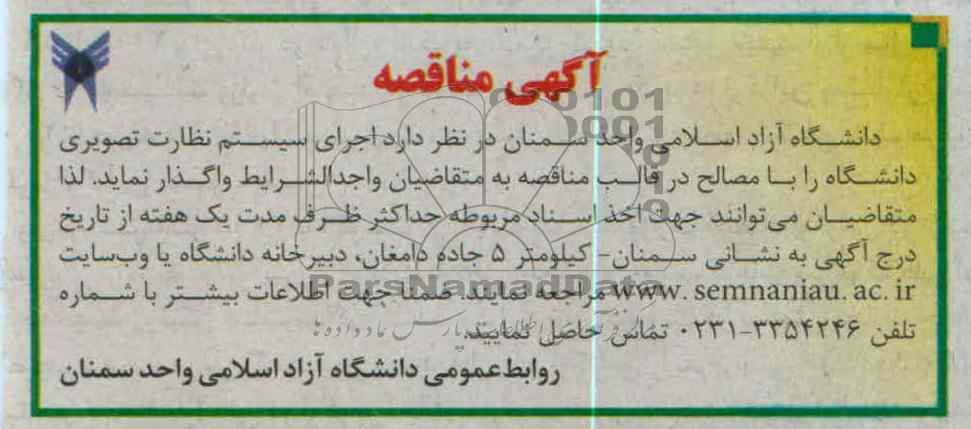 آگهی مناقصه
دانشگاه آزاد اسلامی واحد سمنان در نظر دارد اجرای سیستم نظارت تصویری
دانشگاه را با مصالح در قالب مناقصه به متقاضیان واجدالشرایط واگذار نماید. لذا
متقاضیان می‌توانند جهت اخذ اسناد مربوطه حداکثر ظرف مدت یک هفته از تاریخ
درج آگهی به نشانی سمنان- کیلومتر ۵ جاده دامغان، دبیرخانه دانشگاه یا وب‌سایت
www.semnaniau.ac.ir مراجعه نمایند. ضمنا جهت اطلاعات بیشتر با شماره
تلفن ۳۳۵۴۲۴۶-۰۲۳۱ تماس حاصل نمایید.
روابط‌عمومی دانشگاه آزاد اسلامی واحد سمنان
ParsNamadData